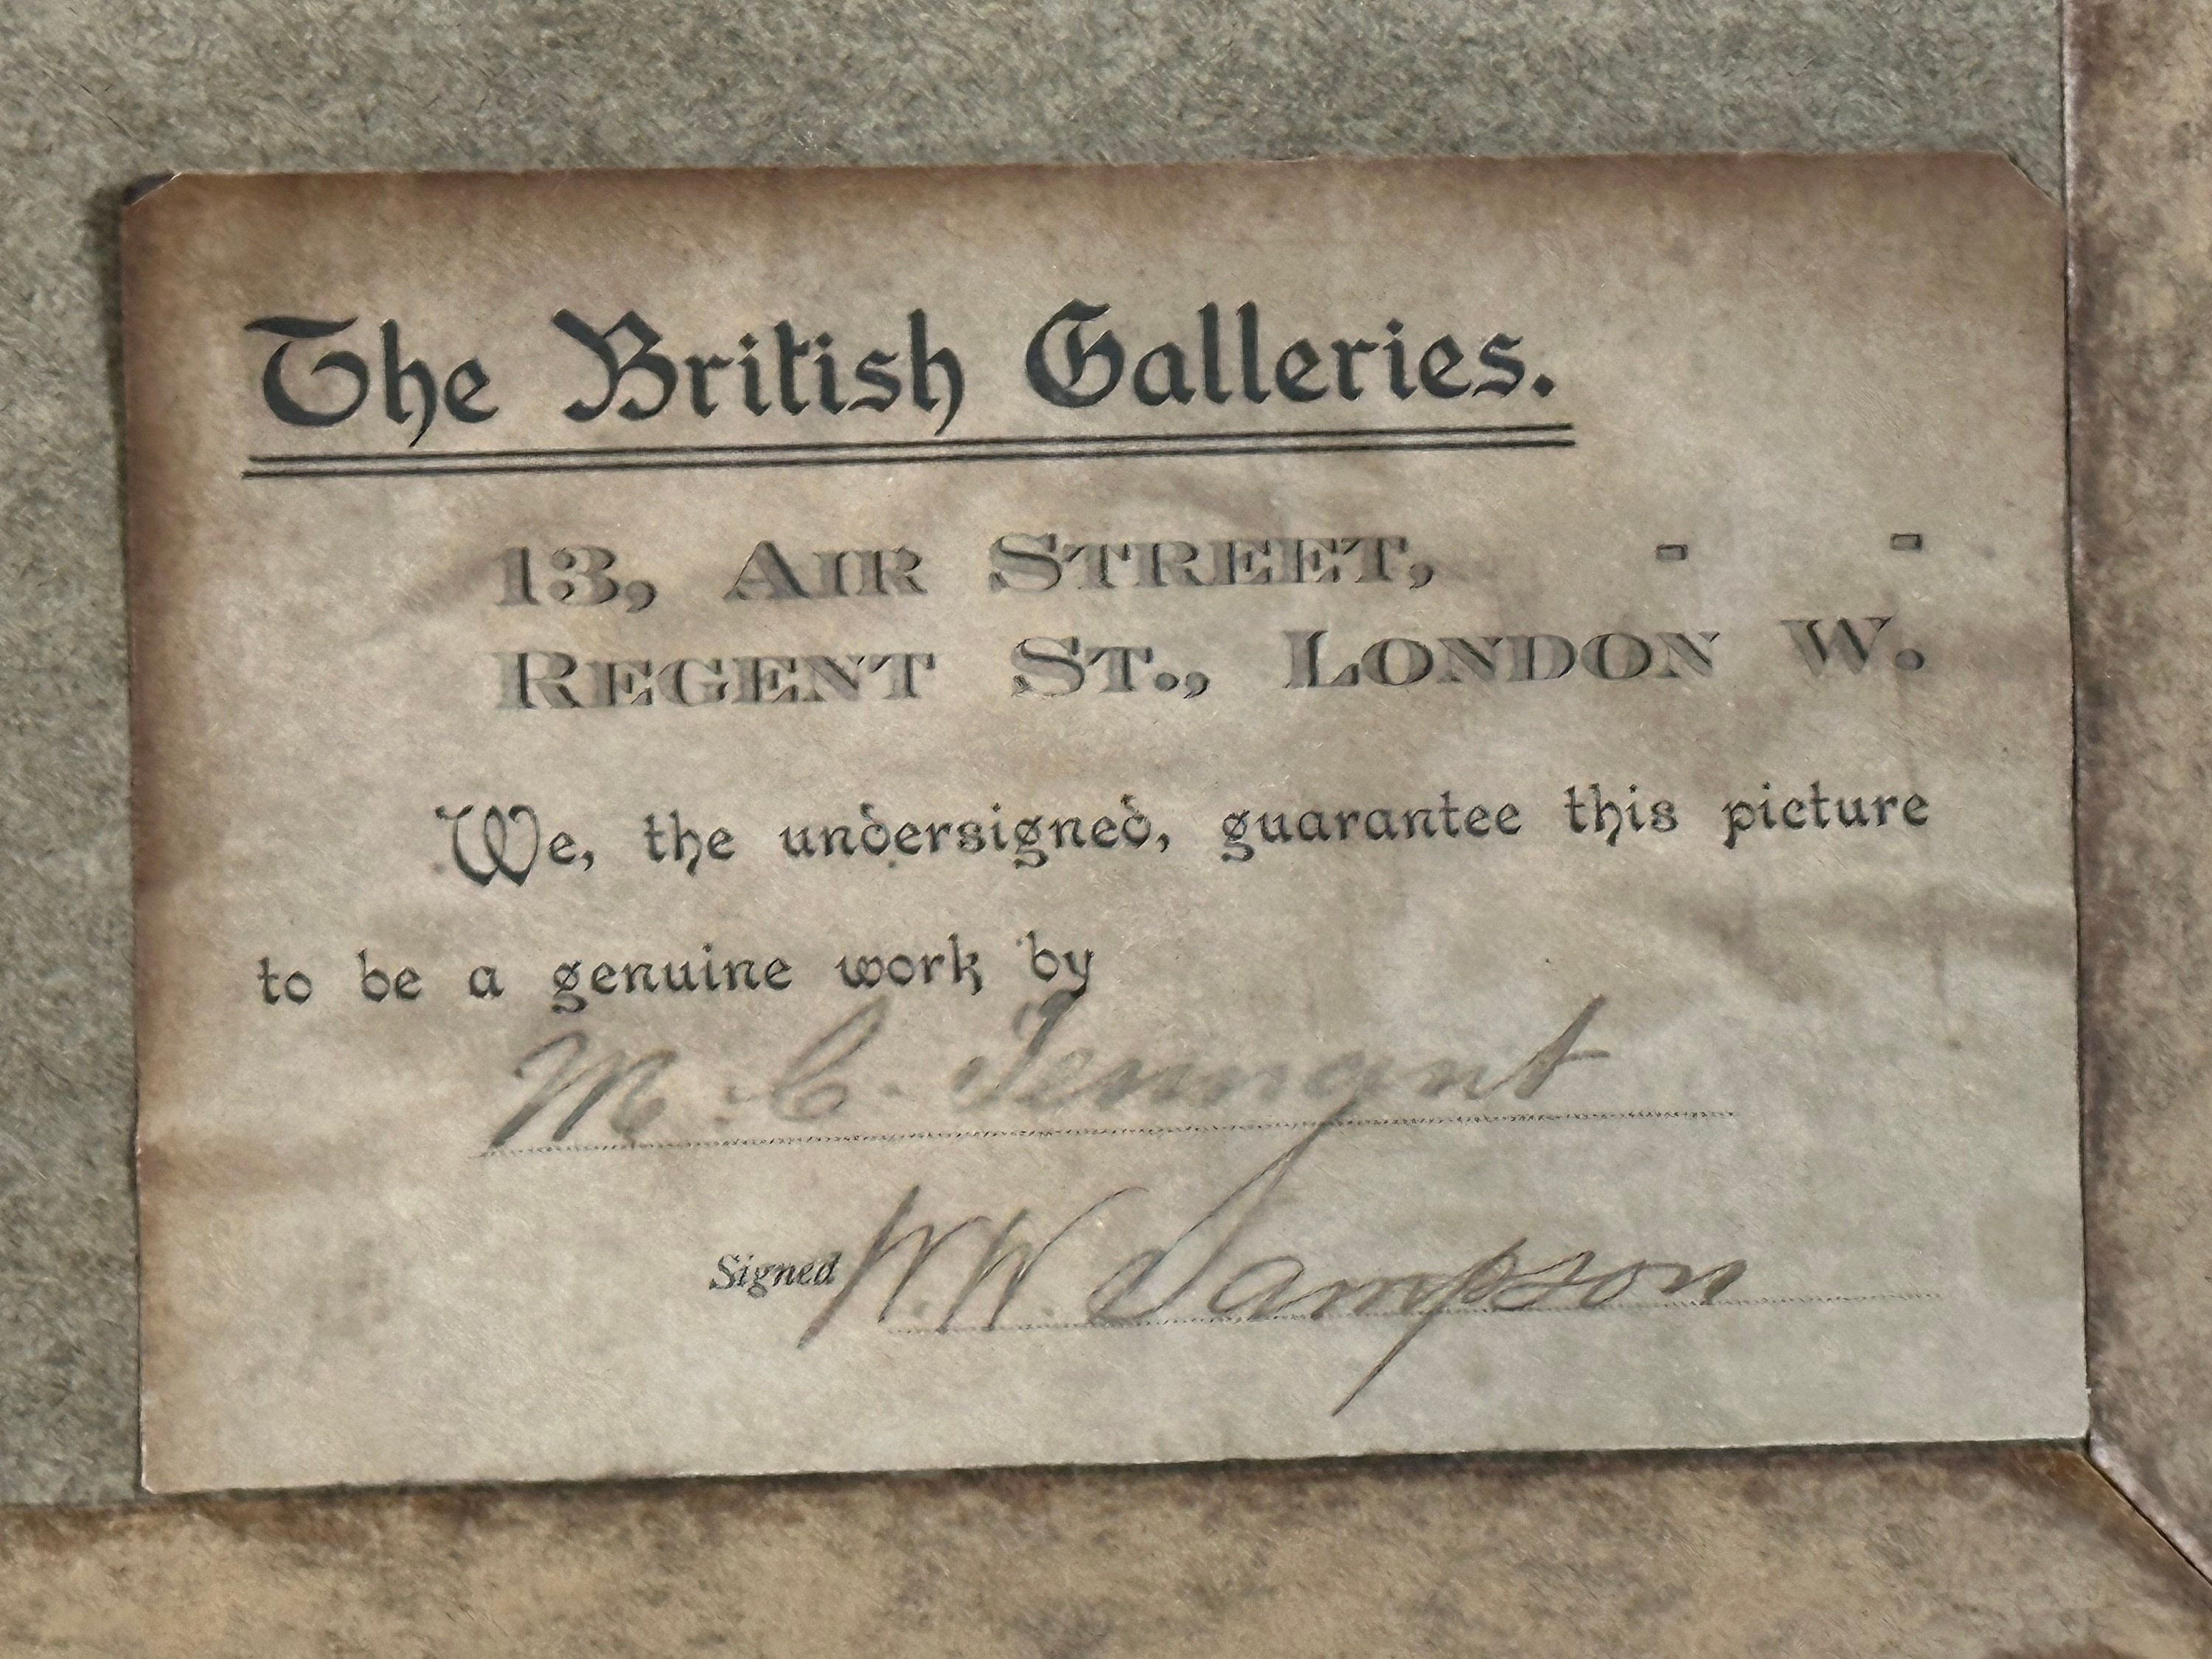 The British Galleries.
13, AIR STREET, - -
REGENT ST., LONDON W.
We, the undersigned, guarantee this picture
to be a genuine work by
M. C. Tenngnt
Signed W. W. Sampson